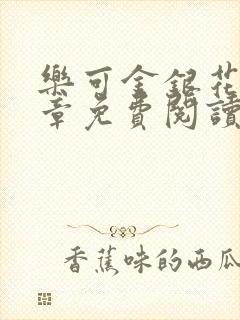 樂可金銀花
章免費閱讀
香蕉味的西瓜